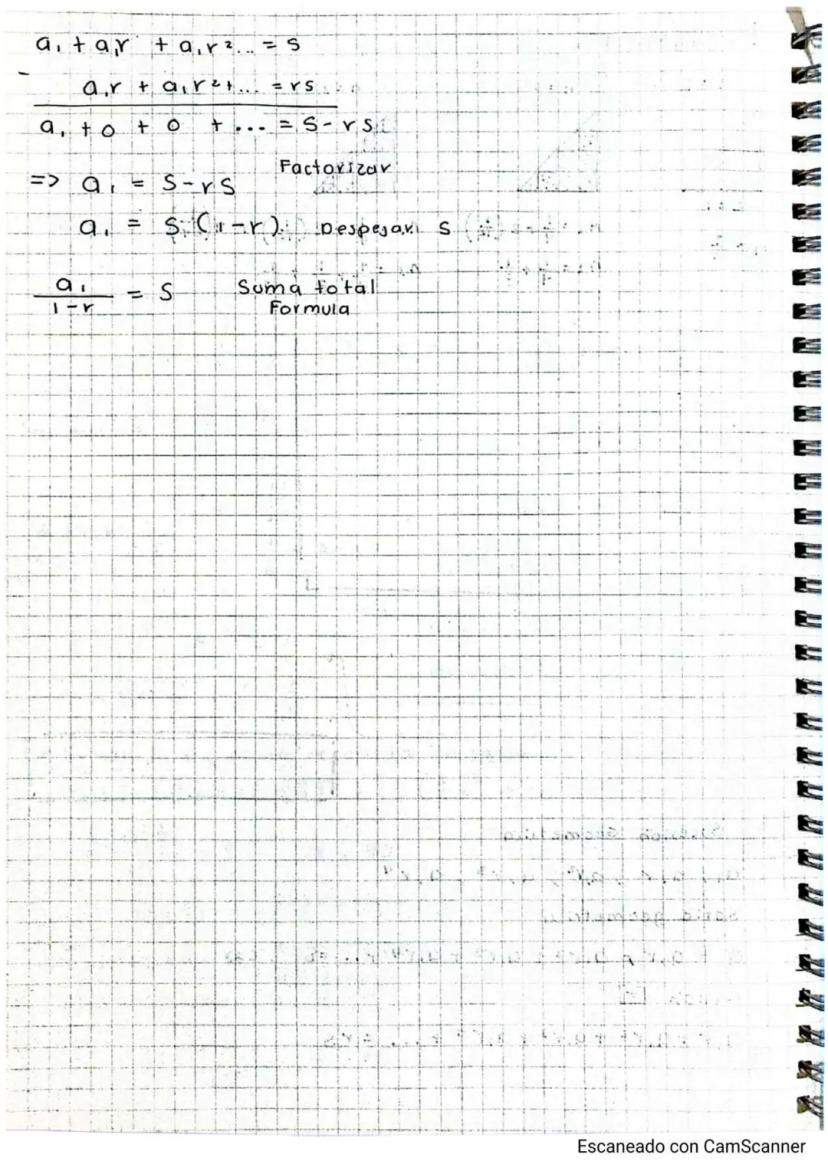 a₁ + a₁r + a₁r²... = s
- a₁r + a₁r²+... = rs
a₁ + 0 + 0 + ... = S - rs
Factorizar
=> a₁ = S - rS
a₁ = S (1-r) Despejar S
a₁ / 1-r = S Suma total
Formula
Escaneado con CamScanner